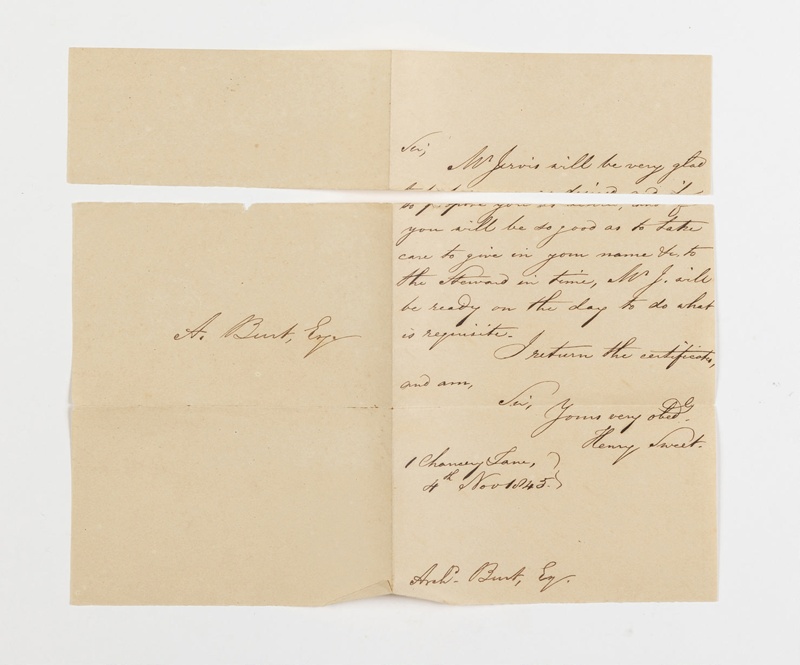 A. Burt, Esq.
Sir,
Mr Jervis will be very glad
to propose you as desired, and if
you will be so good as to take
care to give in your name &c. to
the Steward in time, Mr J. will
be ready on the day to do what
is requisite.
I return the certificate,
and am,
Sir,
Yours very obedt.
Henry Sweet.
1 Chancery Lane,
4th Nov 1845.
Archd. Burt, Esq.